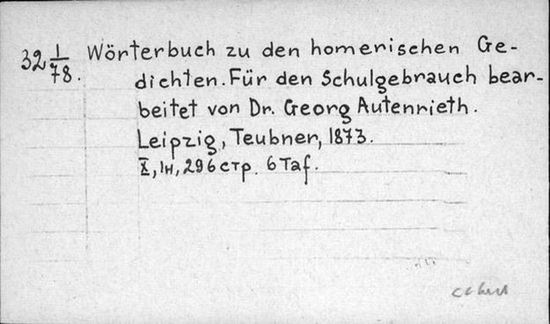 32 1/78. Wörterbuch zu den homerischen Ge-
dichten. Für den Schulgebrauch bear-
beitet von Dr. Georg Autenrieth.
Leipzig, Teubner, 1873.
X, 1н, 296 стр. 6 Taf.